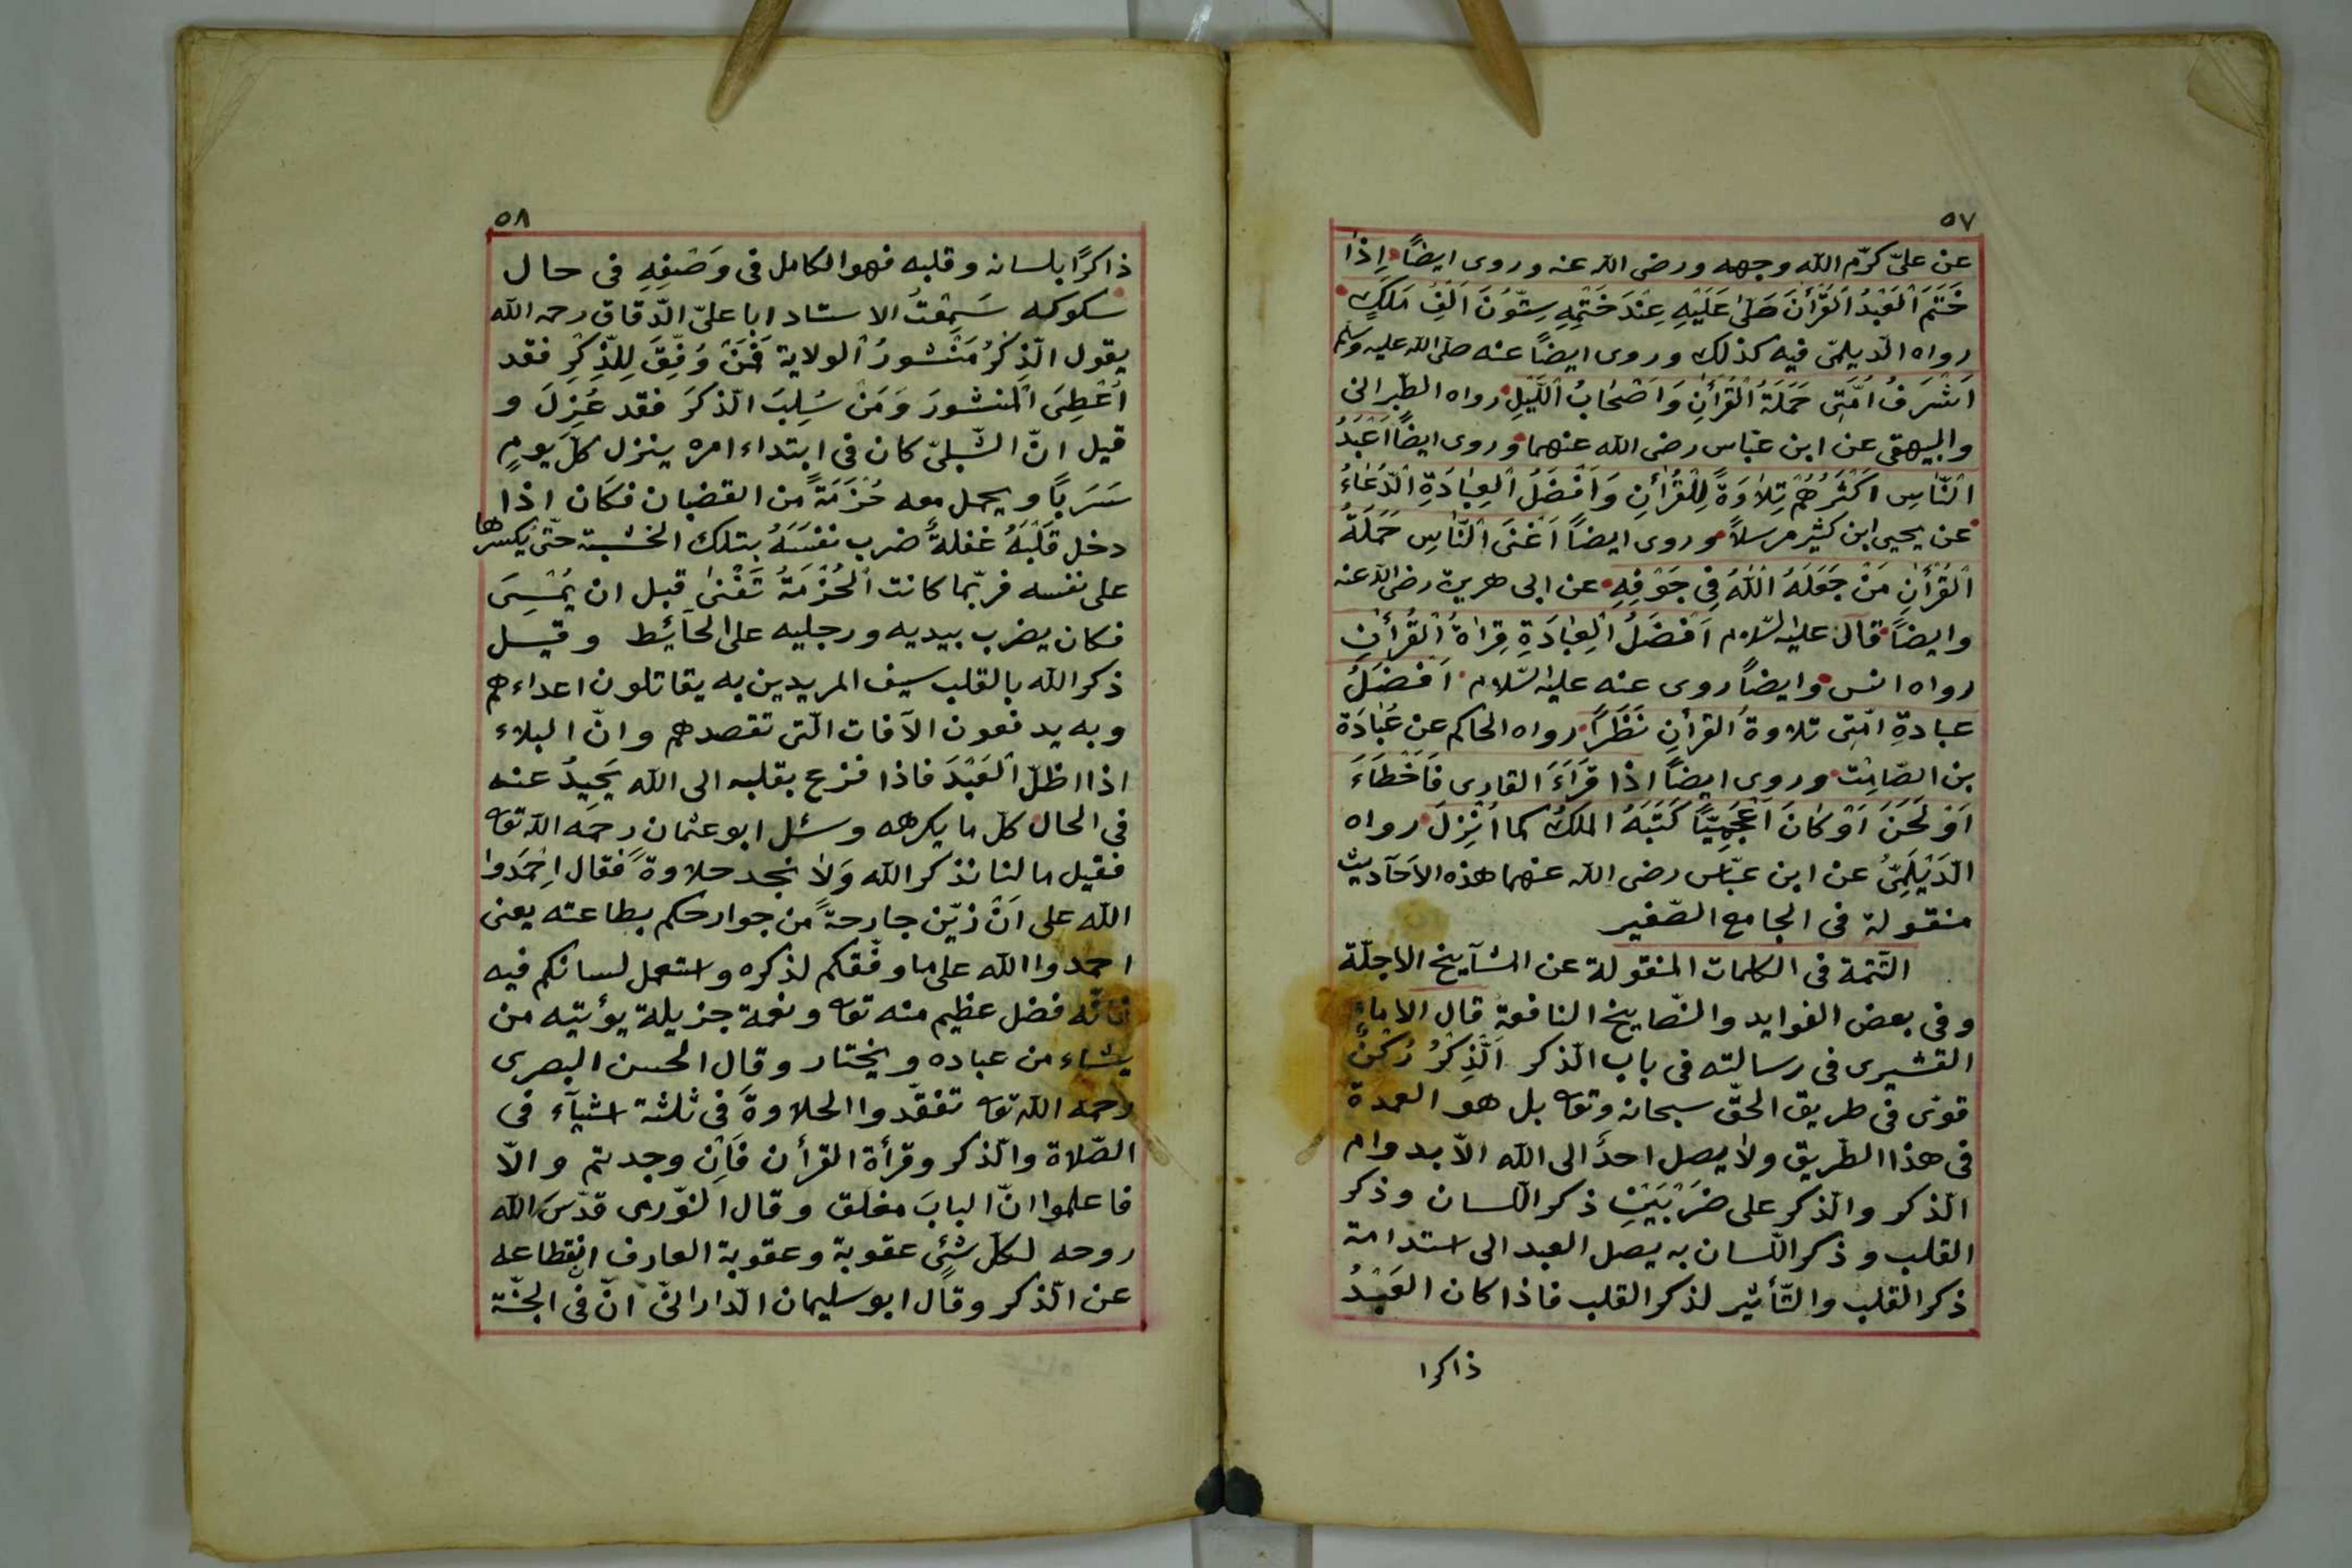 ٥٧
عن علىّ كرّم الله وجهه ورضى الله عنه وروى ايضاً اِذٰا
خَتَمَ اْلعَبْدُ اْلقُرْأٰنَ صَلّىٰ عَلَيْهِ عِنْدَ خَتْمِهِ سِتّوُنَ اَلْفِ مَلَكٍ
رواه الدّيلمّى فيه كذلك وروى ايضاً عنه صلّى الله عليه وسلم
اَشْرَفُ اُمَّتِى حَمَلَةُ اْلقُرْأٰنِ وَاَصْحٰابُ اْللَّيْلِ رواه الطّبرانى
والبيهقى عن ابن عبّاس رضى الله عنهما وروى ايضاً اَعْبَدُ
النّٰاسِ اَكْثَرُهُمْ تِلٰاوَةً لِلْقُرْأٰنِ وَاَفْضَلُ اْلعِبٰادَةِ الْدُّعٰاءُ
عن يحيى ابن كثير مرسلاً وروى ايضاً اَغْنَى النّٰاسِ حَمَلَةُ
اْلقُرْأٰنِ مَنْ جَعَلَهُ اللهُ فِى جَوْفِهِ عن ابى هريرة رضى الله عنه
وايضاً قال عليه السّلام اَفْضَلُ اْلعِبٰادَةِ قِرٰاةُ اْلقُرْأٰنِ
رواه انس وايضاً روى عنه عليه السّلام اَفْضَلُ
عبادةِ امّتِى تلاوةُ القرأنِ نَظَرًا رواه الحاكم عن عُبٰادَة
بن الصّامِت وروى ايضاً اذا قَرَاَءَ القارى فَاَخْطَاَءَ
اَوْ لَحَنَ اَوْ كٰانَ اَعْجَمِيّاً كَتَبَهُ الملَكُ كما اُنْزِلَ رواه
الْدَيْلَمِىُّ عن ابن عبّاس رضى الله عنهما هذه الاَحَآديث
منقولة فى الجامع الصّغير
التّتمة فى الكلمات المنقولة عن المشآيخ الاجلّة
وفى بعض الفوايد والنّصايخ النافعةِ قال الامام
القشيرى فى رسالته فى باب الذّكر اَلْذِّكْرُ رُكْنٌ
قوىّ فى طريق الحقّ سبحانه وتعه بل هو العمدة
فى هذا الطّريق ولا يصل احدٌ الى الله الاّ بدوام
الذّكر والذّكر على ضَرْبَيْنِ ذكر اللّسان وذكر
القلب وذكر اللّسان به يصل العبد الى استدامة
ذكر القلب والتّأثير لذكر القلب فاذا كان العَبْدُ
ذاكرا
٥٨
ذاكرًا بلسانه وقلبه فهو الكامل فى وَصْفِهِ فى حال
سكوكه سَمِعْتُ الاستاد ابا علىّ الدّقاق رحمه الله
يقول الْذِكْرُ مَنْشورُ اْلولاية فَمَنْ وُفِّقَ لِلذِّكِرِ فقد
اُعْطِىَ اْلمنشورَ وَمَنْ سُلِبَ الذّكرَ فقد عُزِلَ و
قيل انّ الشّبلىّ كان فى ابتداء امره ينزل كلّ يومٍ
سَرَبًا ويحمل معه حُزْمَةً من القضبان فكان اذا
دخل قَلْبَهُ غفلةٌ ضرب نفْسَهُ بتلك الخشبة حتّى يكسرها
على نفسه فربّما كانت اْلحُزْمَةُ تَفْنىٰ قبل ان يُمْسِىَ
فكان يضرب بيديه ورجليه على الحآئِط وقيل
ذكر الله بالقلب سيف المريدين به يقاتلون اعداءهم
وبه يدفعون الآفات الّتى تقصدهم وانّ البلاء
اذا اظلّ اْلعَبْدَ فاذا فزع بقلبه الى الله يَحِيدُ عنه
فى الحال كلّ ما يكرهه وسئل ابو عثمان رحمَه الله تعه
فقيل ما لنا نذكر الله وَلاٰ نجد حلاوةً فقال اِحْمَدوا
الله على اَنْ زيّن جارحةً من جوارحكم بطاعته يعنى
احمدوا الله على ما وفّقكم لذكره واستعمل لسانكم فيه
فانّه فضل عظيم منه تعه ونعمة جزيلة يؤتيه من
يشاء من عباده ويختار وقال الحسن البصرى
رحمه الله تعه تفقّدوا الحلاوةَ فى ثلثة اشيآء فى
الصّلاة والذّكر وقرأة القرأن فَاِن وجدتم والاّ
فاعلموا انّ البابَ مغلق وقال النّورى قدّسَ الله
روحه لكلّ شئٍ عقوبة وعقوبة العارف انقطاعه
عن الذّكر وقال ابو سليمان الدّارانىّ انّ فى الجنّة